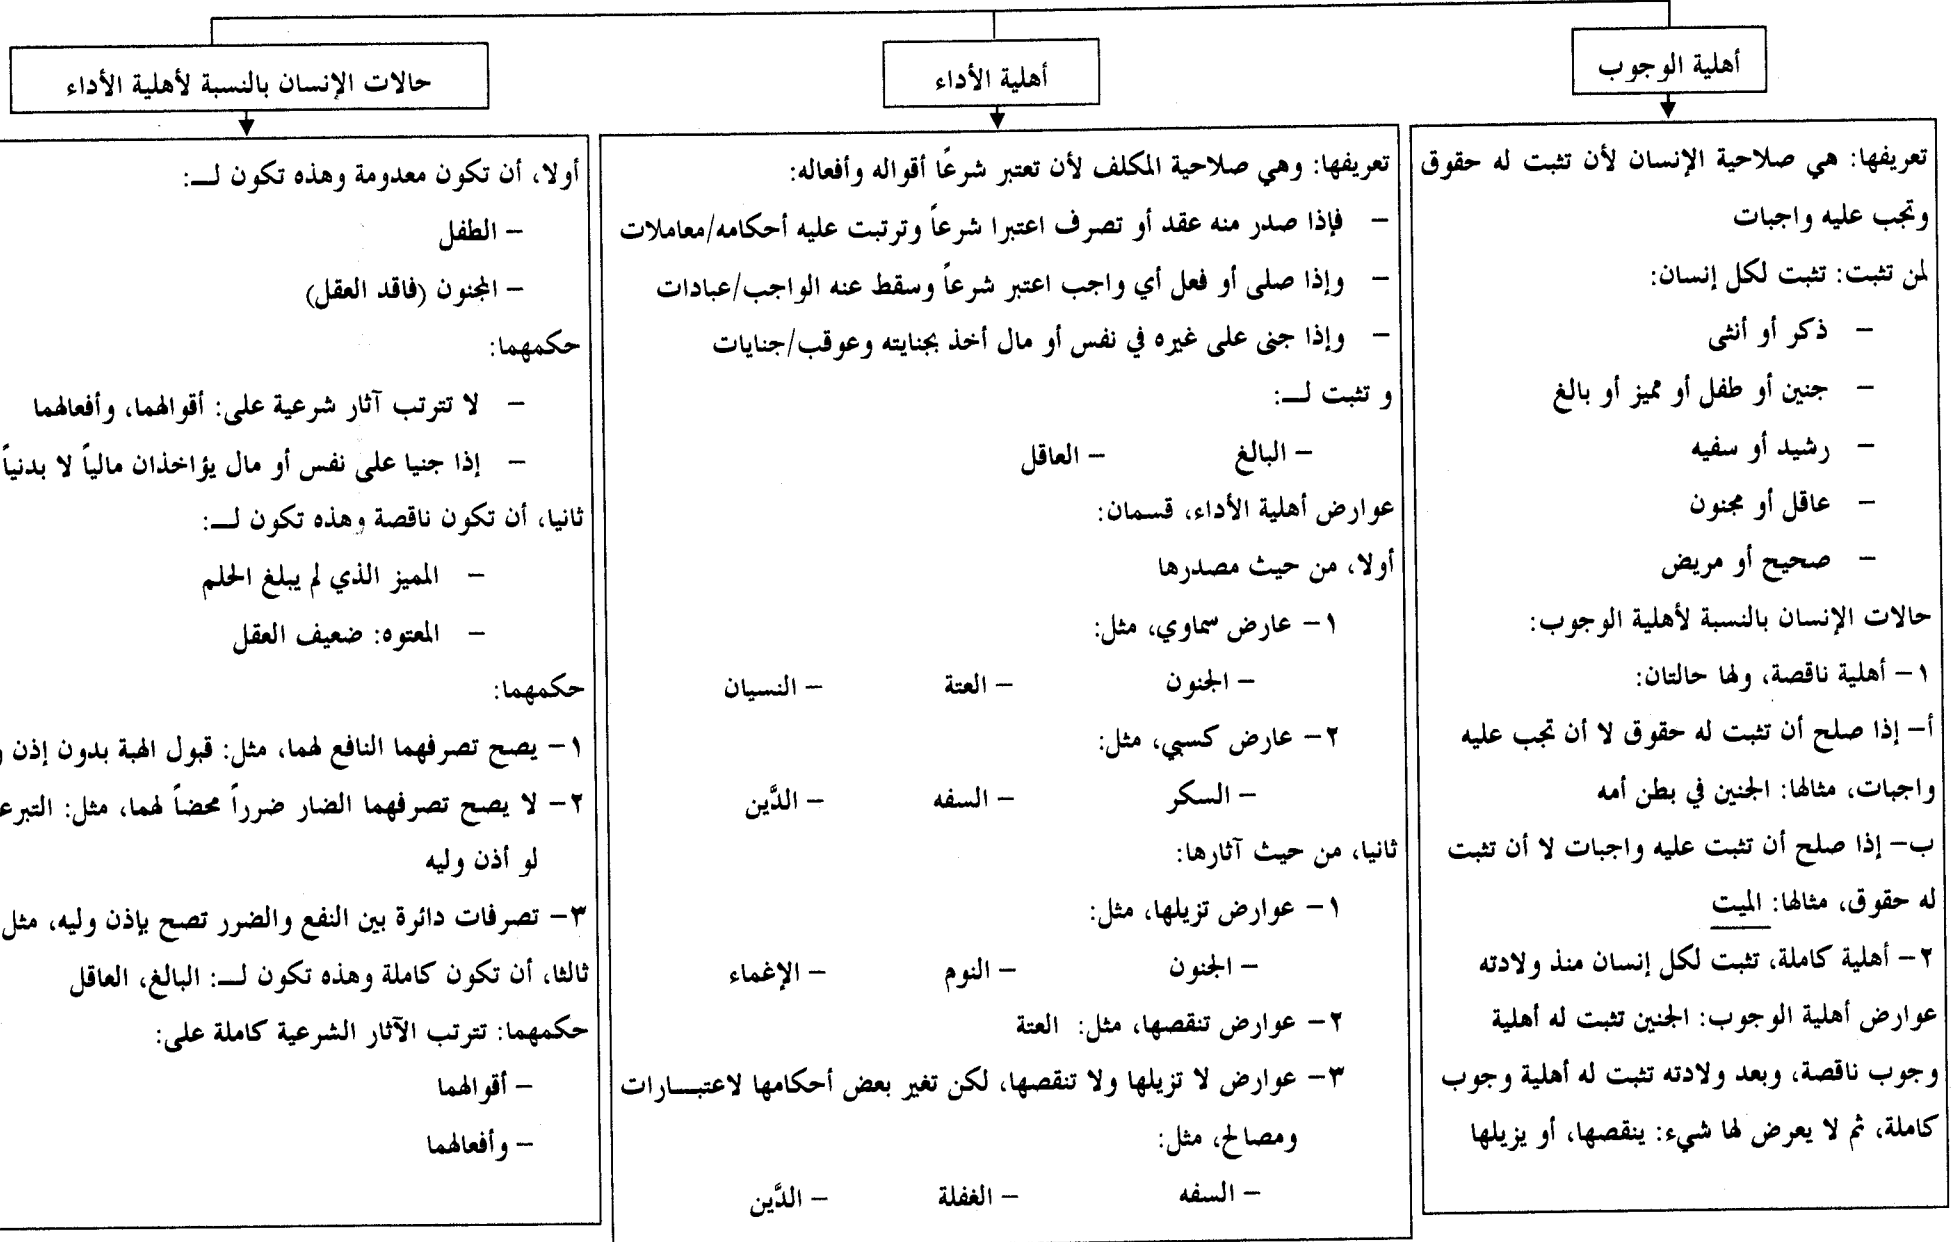 أهلية الوجوب
تعريفها: هي صلاحية الإنسان لأن تثبت له حقوق
وتجب عليه واجبات
لمن تثبت: تثبت لكل إنسان:
– ذكر أو أنثى
– جنين أو طفل أو مميز أو بالغ
– رشيد أو سفيه
– عاقل أو مجنون
– صحيح أو مريض
حالات الإنسان بالنسبة لأهلية الوجوب:
١– أهلية ناقصة، ولها حالتان:
أ– إذا صلح أن تثبت له حقوق لا أن تجب عليه
واجبات، مثالها: الجنين في بطن أمه
ب– إذا صلح أن تثبت عليه واجبات لا أن تثبت
له حقوق، مثالها: الميت
٢– أهلية كاملة، تثبت لكل إنسان منذ ولادته
عوارض أهلية الوجوب: الجنين تثبت له أهلية
وجوب ناقصة، وبعد ولادته تثبت له أهلية وجوب
كاملة، ثم لا يعرض لها شيء: ينقصها، أو يزيلها
أهلية الأداء
تعريفها: وهي صلاحية المكلف لأن تعتبر شرعًا أقواله وأفعاله:
– فإذا صدر منه عقد أو تصرف اعتبرا شرعاً وترتبت عليه أحكامه/معاملات
– وإذا صلى أو فعل أي واجب اعتبر شرعاً وسقط عنه الواجب/عبادات
– وإذا جنى على غيره في نفس أو مال أخذ بجنايته وعوقب/جنايات
و تثبت لـــ:
– البالغ – العاقل
عوارض أهلية الأداء، قسمان:
أولا، من حيث مصدرها
١– عارض سماوي، مثل:
– الجنون – العتة – النسيان
٢– عارض كسبي، مثل:
– السكر – السفه – الدَّين
ثانيا، من حيث آثارها:
١– عوارض تزيلها، مثل:
– الجنون – النوم – الإغماء
٢– عوارض تنقصها، مثل: العتة
٣– عوارض لا تزيلها ولا تنقصها، لكن تغير بعض أحكامها لاعتبـــارات
ومصالح، مثل:
– السفه – الغفلة – الدَّين
حالات الإنسان بالنسبة لأهلية الأداء
أولا، أن تكون معدومة وهذه تكون لـــ:
– الطفل
– المجنون (فاقد العقل)
حكمهما:
– لا تترتب آثار شرعية على: أقوالهما، وأفعالهما
– إذا جنيا على نفس أو مال يؤاخذان مالياً لا بدنياً
ثانيا، أن تكون ناقصة وهذه تكون لـــ:
– المميز الذي لم يبلغ الحلم
– المعتوه: ضعيف العقل
حكمهما:
١– يصح تصرفهما النافع لهما، مثل: قبول الهبة بدون إذن
٢– لا يصح تصرفهما الضار ضرراً محضاً لهما، مثل:
لو أذن وليه
٣– تصرفات دائرة بين النفع والضرر تصح بإذن وليه، مثل
ثالثا، أن تكون كاملة وهذه تكون لـــ: البالغ، العاقل
حكمهما: تترتب الآثار الشرعية كاملة على:
– أقوالهما
– وأفعالهما